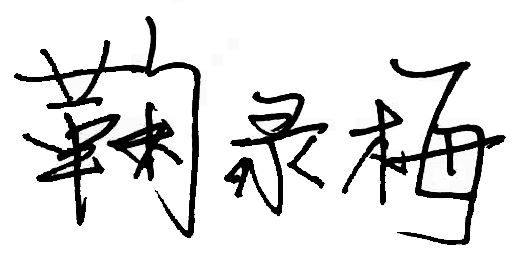 鞠录梅